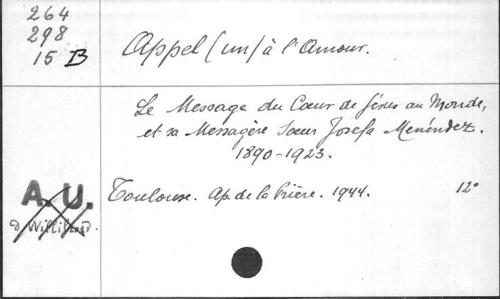 264
298
15 B
Appel (un) à l'Amour.
Le Message du Cœur de Jésus au Monde,
et sa Messagère Sœur Josefa Menéndez.
1890-1923.
A. U.
Toulouse. Ap. de la Prière. 1944. 12°
D. Willibrord.